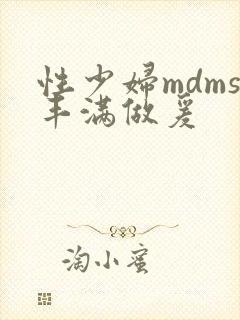 性少婦mdms
丰满做爰
淘小蜜